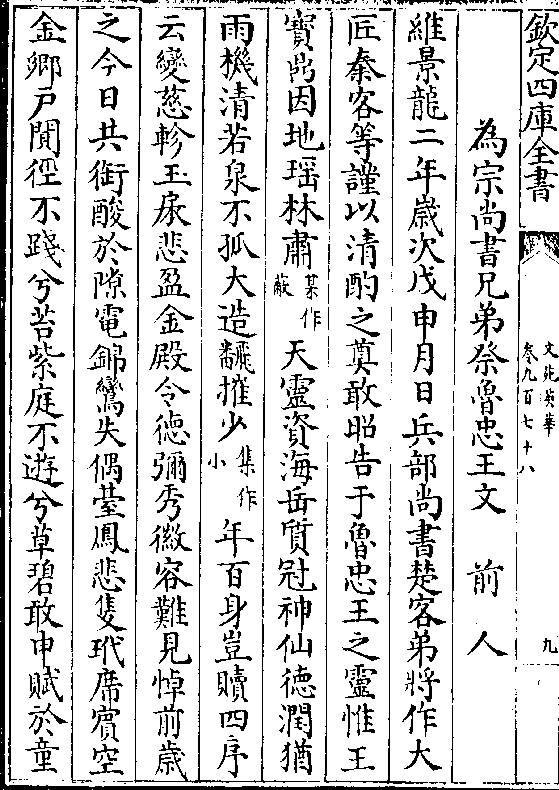 欽定四庫全書
文苑英華
卷九百七十八
九
為宗尚書兄弟祭魯忠王文　前人
維景龍二年歲次戊申月日兵部尚書楚客弟將作大
匠秦客等謹以清酌之奠敢昭告于魯忠王之靈惟王
寶𠧩因地瑶林肅某作蔽天靈資海岳質冠神仙德潤猶
雨機清若泉不孤大造飜摧少集作小年百身豈贖四序
云變慈軫玉扆悲盈金殿令德彌秀徽容難見悼前歲
之今日共銜酸於隙電錦鸞失偶臺鳳悲隻玳席賓空
金鄉戸閴徑不踐兮苔紫庭不遊兮草碧敢申賦於童